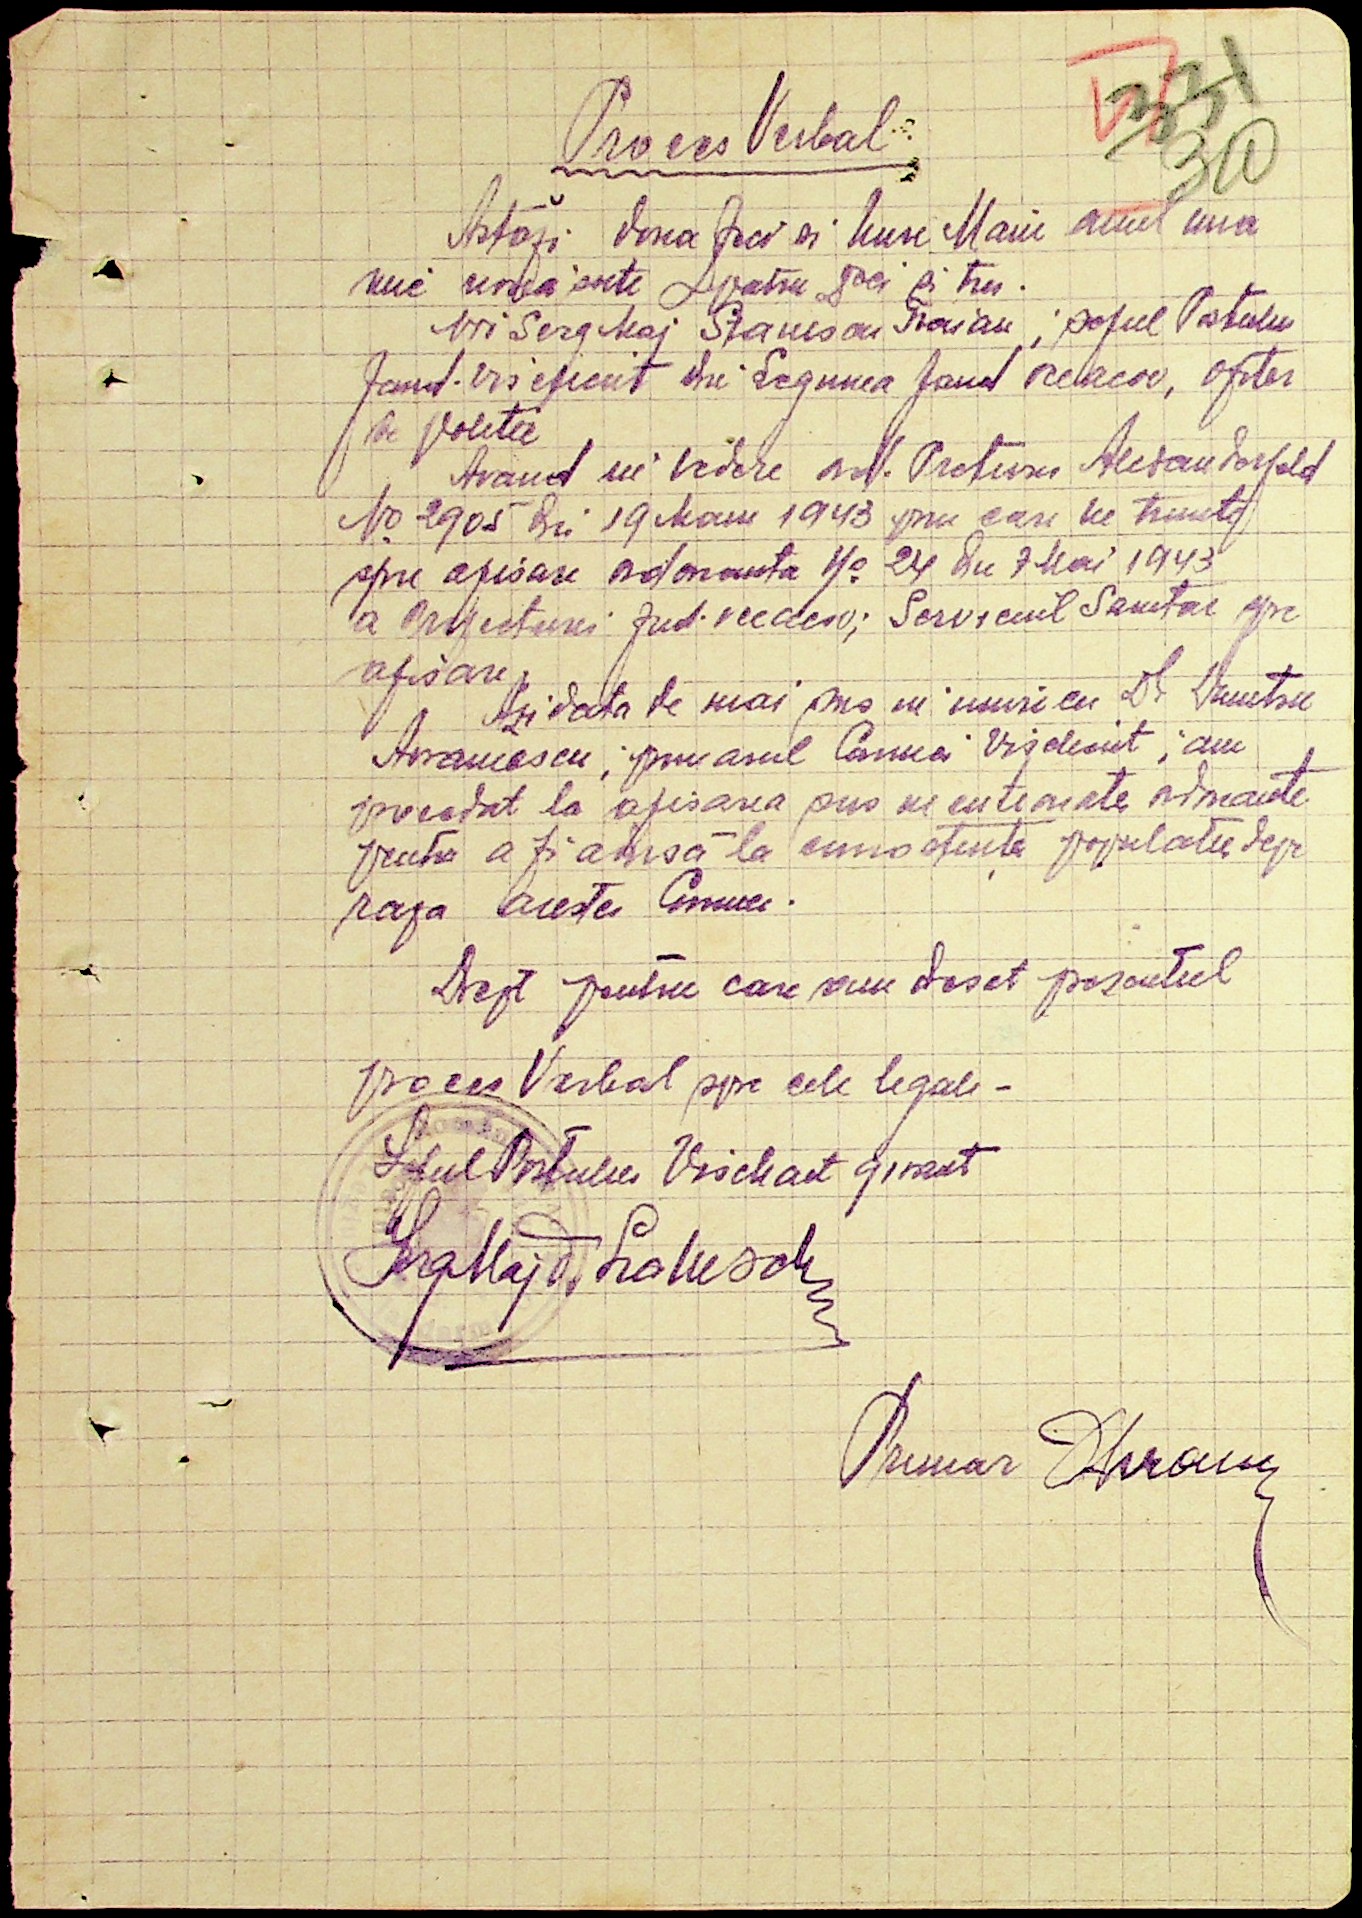 331
30
Proces Verbal
Astăzi doua zeci si una Maiu anul una
mie noua sute patru zeci si trei.
Noi Serg Maj Stanescu Traian, seful Postului
Jand. din Legiunea Jand Oceacov, ofiter
de politie
Avand in vedere ord. Preturei Alexandorfeld
No 2905 din 19 Maiu 1943 prin care ne trimite
spre afisare ordonanta No 24 din 7 Mai 1943
a Prefecturei Jud. Oceacov, Serviciul Sanitar spre
afisare.
Azi data de mai sus in unire cu Dl Dumitru
Avramescu, primarul Comunei, am
procedat la afisarea sus ordonante
pentru a fi adusă la cunostința populatiei depe
raza acestei Comune.
Drept pentru care am dresat prezentul
proces Verbal spre cele legale -
Seful Postului girant
Serg Maj T. Stanescu
Primar DAvram